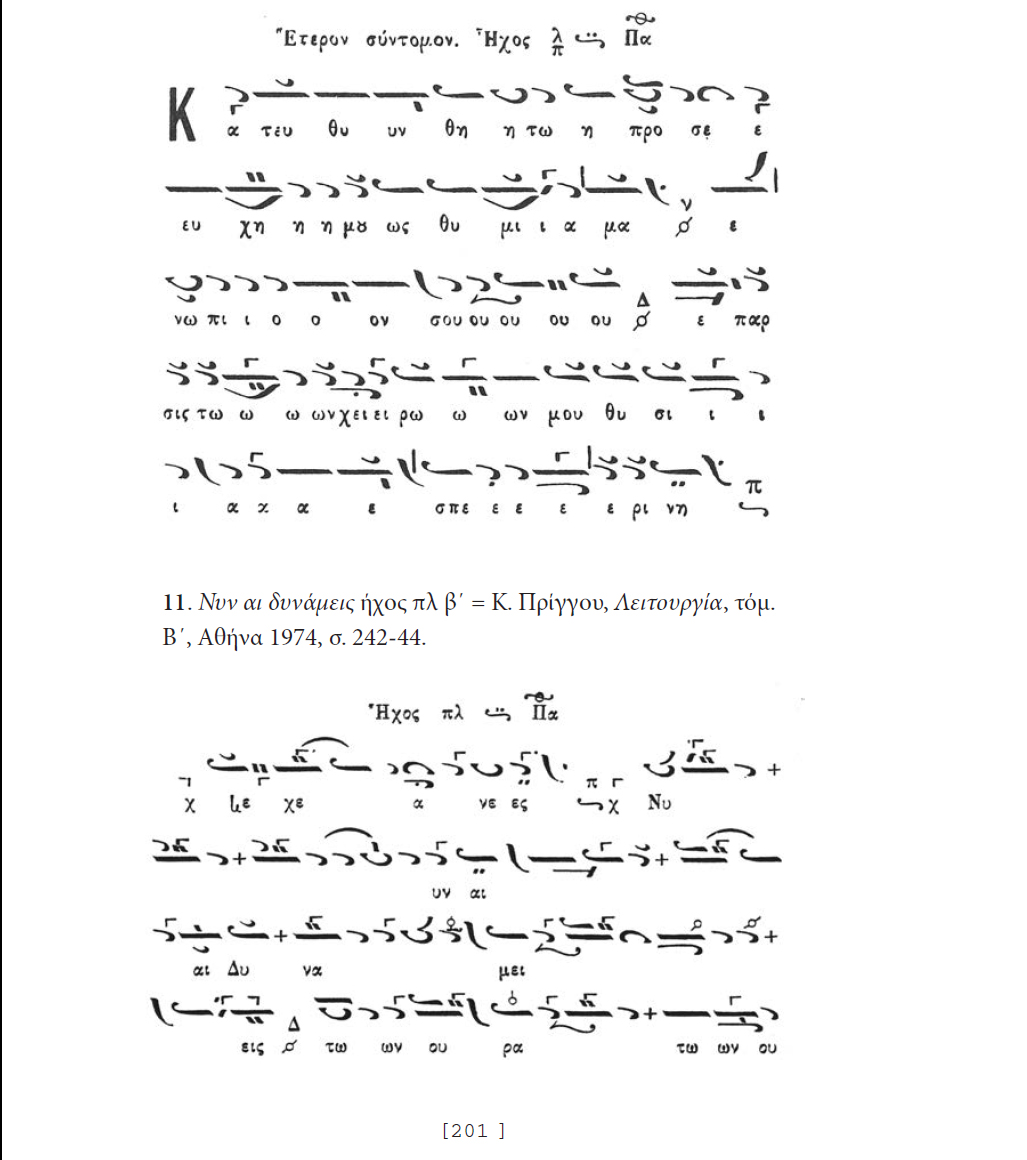 Ἕτερον σύντομον. Ἦχος λ π Πα
Κ α τευ θυ υν θη η τω η προ σε ε
ευ χη η η μȣ ως θυ μι ι α μα ε
νω πι ι ο ο ον σου ου ου ου ου Δ ε παρ
σις τω ω ω ων χει ει ρω ω ων μου θυ σι ι ι
ι α κ α ε σπε ε ε ε ε ρι νη π
11. Νυν αι δυνάμεις ήχος πλ β΄ = Κ. Πρίγγου, Λειτουργία, τόμ.
Β΄, Αθήνα 1974, σ. 242-44.
Ἦχος πλ Πα
χ χε α νε ες π χ Νυ
υν αι
αι Δυ να μει
εις Δ τω ων ου ρα τω ων ου
[201 ]